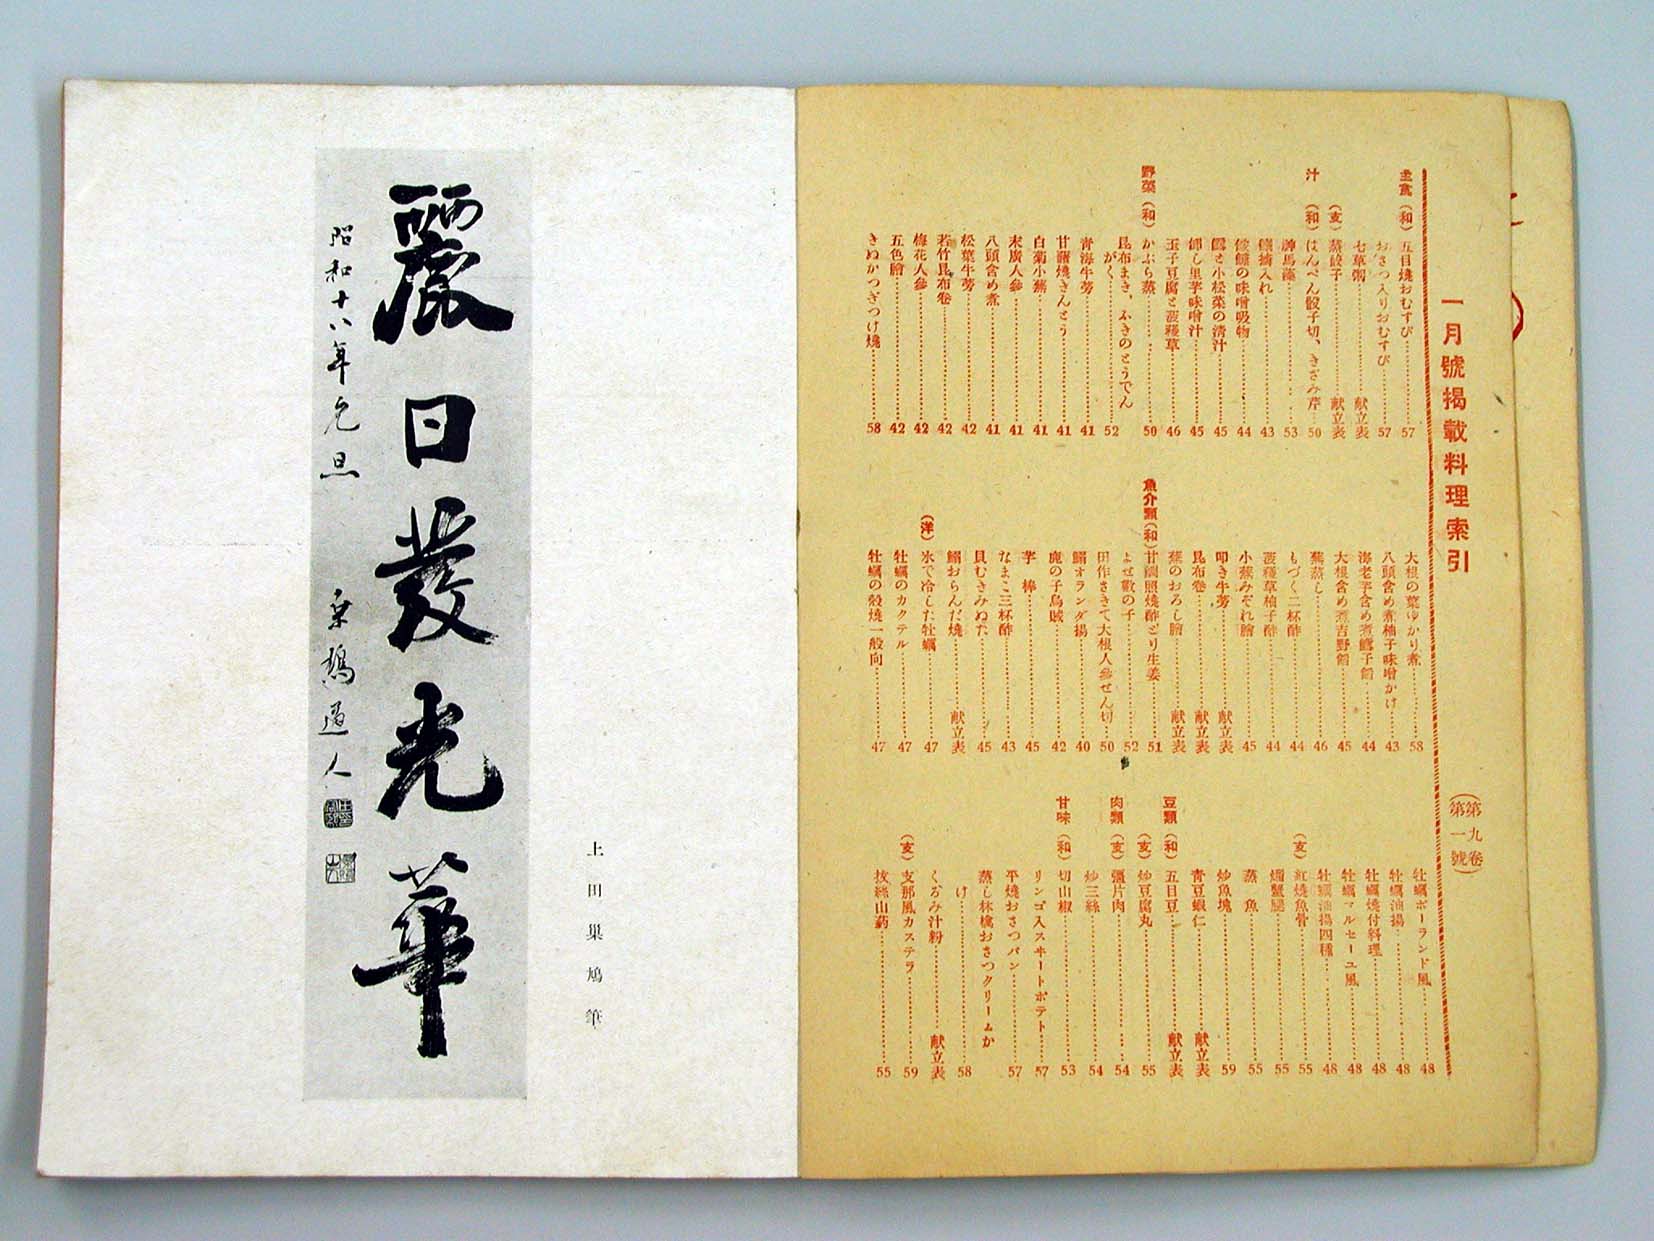 一月號揭載料理索引
(第九卷 第一號)
主食(和)五目燒おむすび 57
おさつ入りおむすび 57
七草粥 献立表
(支)蒸餃子 献立表
汁(和)はんぺん骰子切、きざみ芹 50
神馬藻 53
鰯摘入れ 43
鮟鱇の味噌吸物 44
鱈と小松菜の淸汁 45
卸し里芋味噌汁 45
玉子豆腐と菠薐草 46
野菜(和)かぶら蒸 50
昆布まき、ふきのとうでん
がく 52
靑海牛蒡 41
甘藷燒きんとう 41
白菊小蕪 41
末廣人參 41
八頭含め煮 41
松葉牛蒡 42
若竹昆布卷 42
梅花人參 42
五色膾 42
きぬかつぎつけ燒 58
大根の葉ゆかり煮 58
八頭含め煮柚子味噌かけ 43
海老芋含め煮鱈子餡 44
大根含め煮吉野餡 45
蕪蒸し 46
もづく二杯酢 44
菠薐草柚子酢 44
小蕪みぞれ膾 45
叩き牛蒡 献立表
昆布卷 献立表
蕪のおろし膾 献立表
魚介類(和)甘鯛照燒酢どり生姜 51
よせ數の子 52
田作さきて大根人參せん切 50
鰯オランダ揚 40
鹿の子烏賊 42
芋棒 45
なまこ三杯酢 43
貝むきみぬた 45
鰯おらんだ燒 献立表
(洋)氷で冷した牡蠣 47
牡蠣のカクテル 47
牡蠣の殼燒一般向 47
牡蠣ポーランド風 48
牡蠣油揚 48
牡蠣燒付料理 48
牡蠣マルセーユ風 48
牡蠣油揚四種 48
(支)紅燒魚骨 55
燗蟹腿 55
蒸魚 55
炒魚塊 59
靑豆蝦仁 献立表
豆類(和)五目豆 献立表
(支)炒豆腐丸 55
肉類(支)彈片肉 54
炒三絲 54
甘味(和)切山椒 53
リンゴ入スヰートポテト 57
平燒おさつパン 57
蒸し林檎おさつクリームか
け 58
くるみ汁粉 献立表
(支)支那風カステラ 59
拔絲山藥 55
上田巢鳩筆
麗日發光華
昭和十八年元旦
巢鳩道人